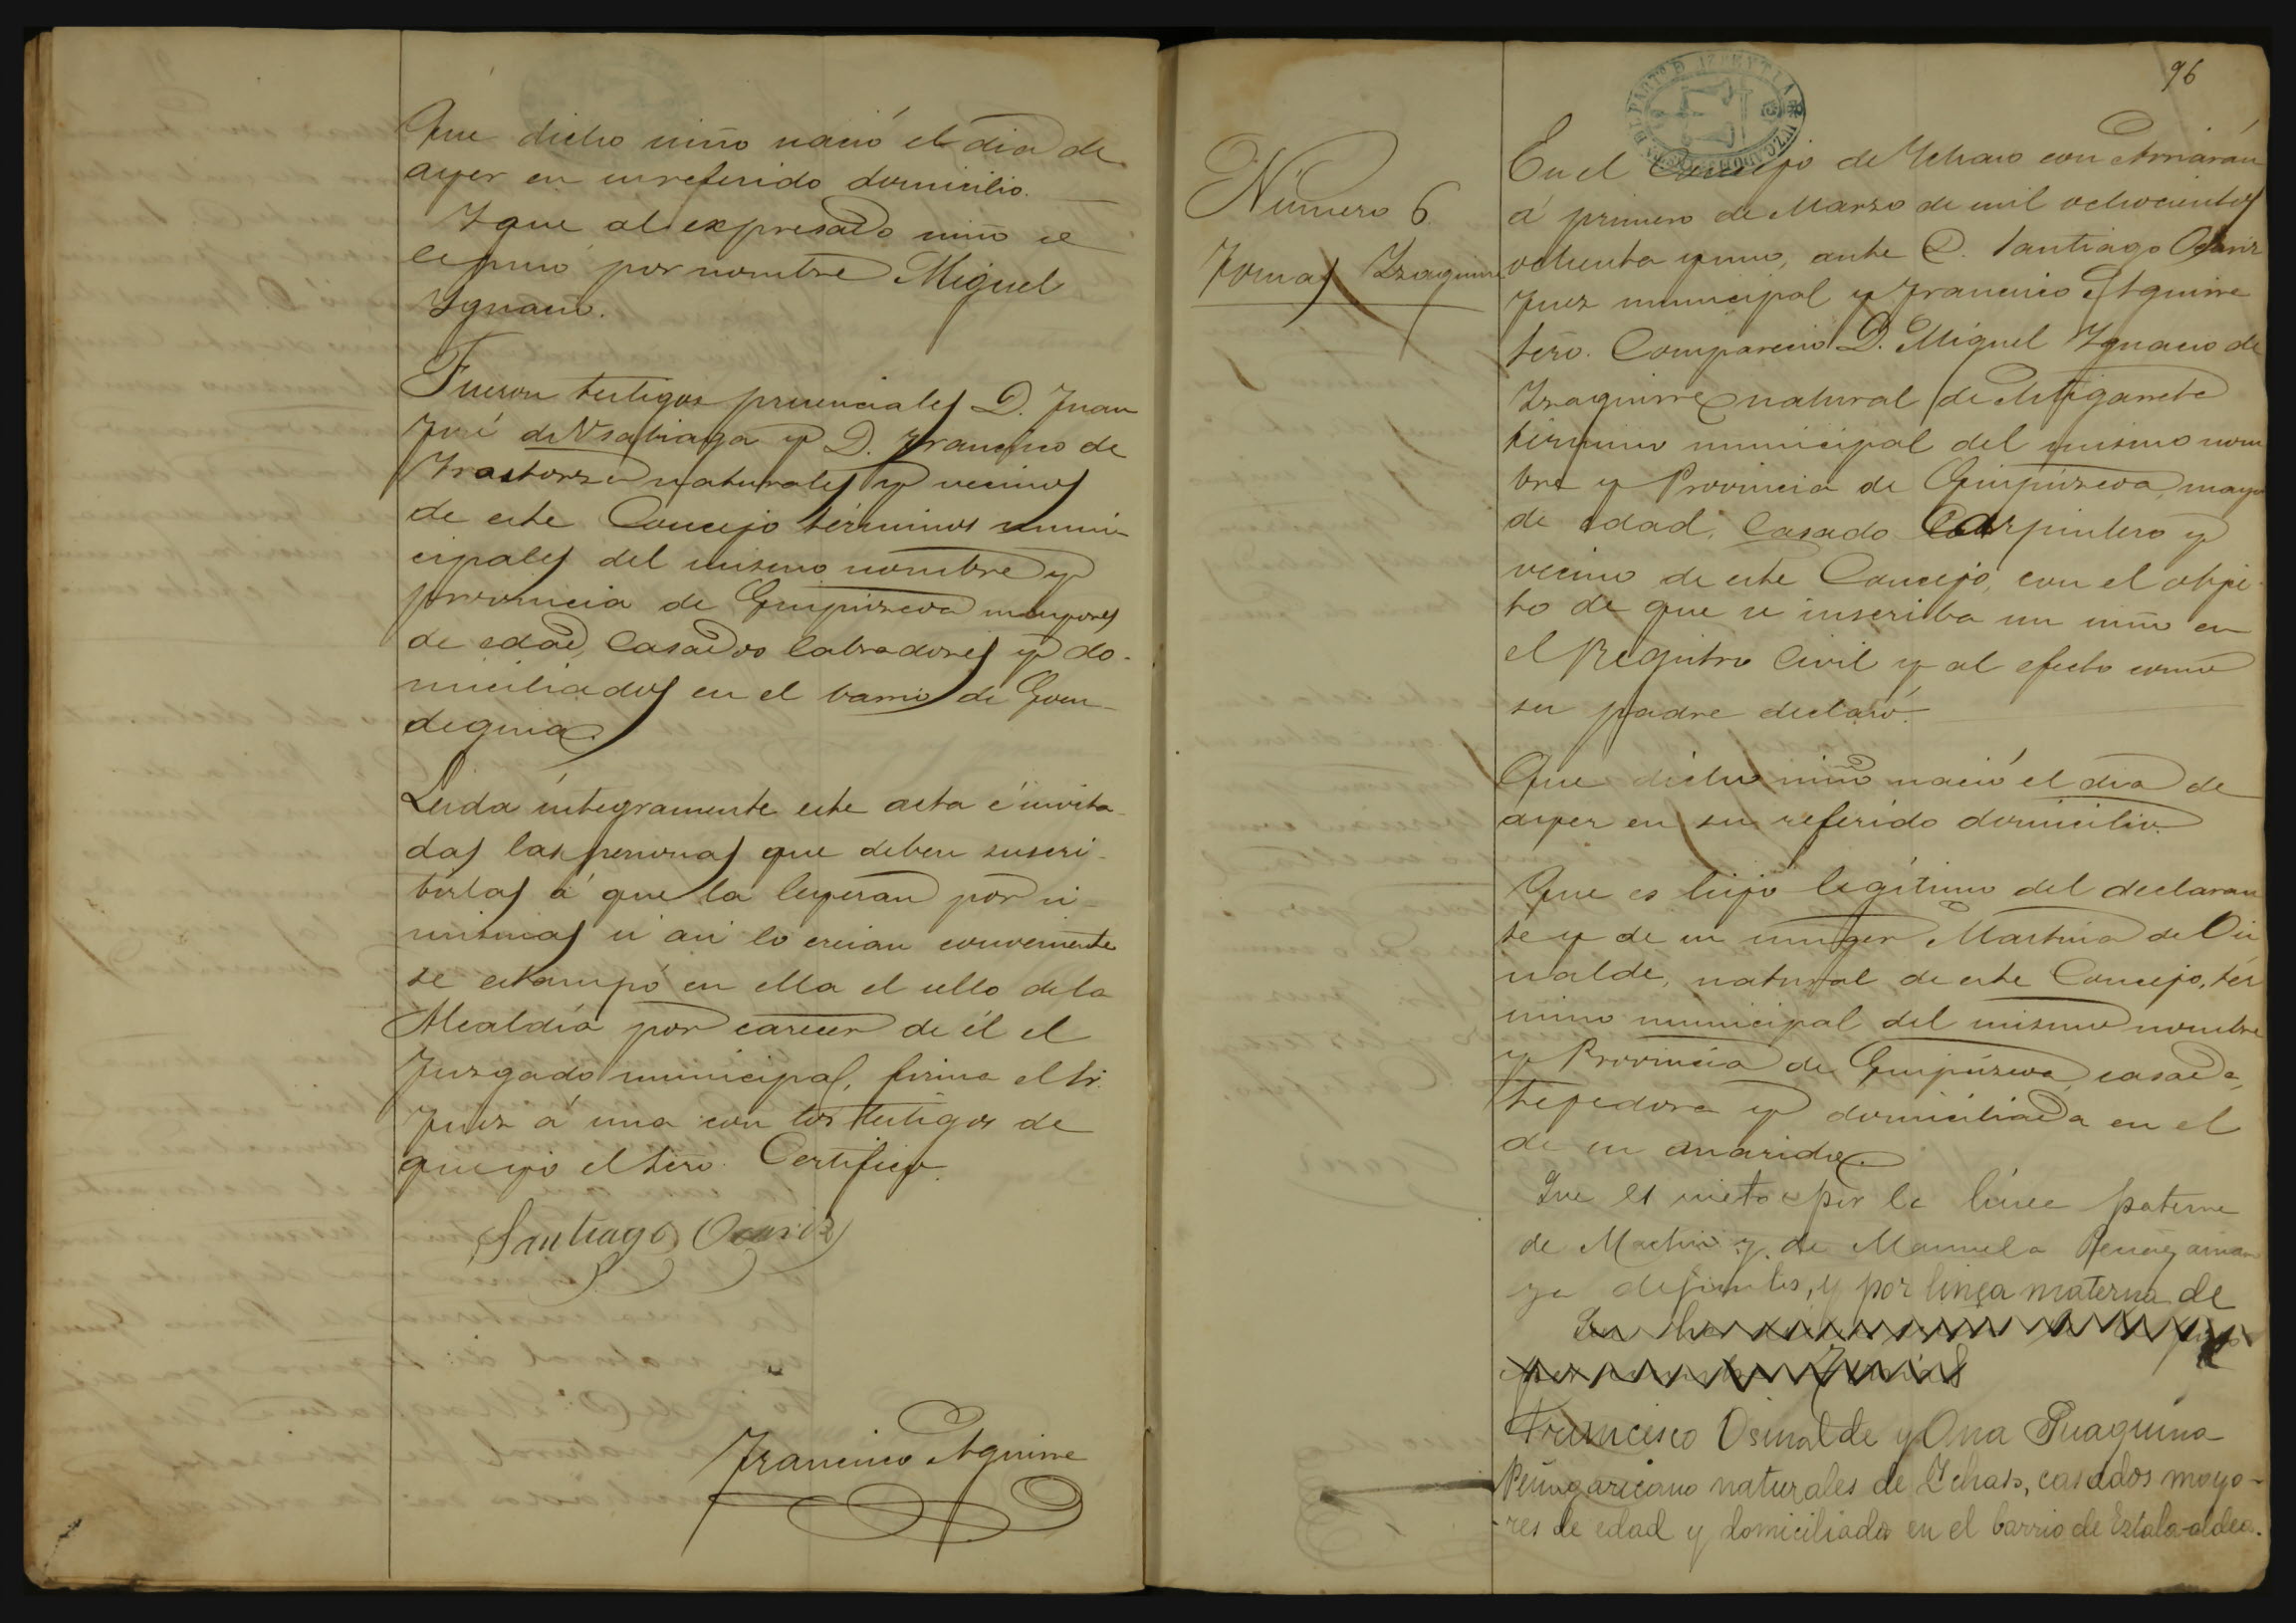 Que dicho niño nació el dia de
ayer en su referido domicilio.
Y que al expresado niño se
le puso por nombre Miguel
Ygnacio.
Fueron testigos presenciales D. Juan
José de Usabiaga y D. Francisco de
Yrastorza naturales y vecinos
de este Concejo términos muni-
cipales del mismo nombre y
provincia de Guipúzcoa mayores
de edad, casados labradores y do-
miciliados en el barrio de
Leida íntegramente este acta é invita-
das las personas que deben suscri-
birlas á que la leyeran por si
mismas si asi lo creian conveniente
se estampó en ella el sello de la
Alcaldía por carecer de él el
Juzgado municipal, firma el Sr.
Juez á una con los testigos de
que yo el Srio. Certifico.
Santiago Ocariz
Francisco Aguirre
96
Número 6
Tomas Yzaguirre
En el Concejo de Ychaso con Arriarán
á primero de Marzo de mil ochocientos
ochenta y uno, ante D. Santiago Ocariz
Juez municipal y Francisco Aguirre
Srio. Compareció D. Miguel Ygnacio de
Yzaguirre natural de Astigarreta
término municipal del mismo nom
bre y Provincia de Guipúzcoa, mayor
de edad, casado Carpintero y
vecino de este Concejo, con el obje-
to de que se inscriba un niño en
el Registro Civil y al efecto como
su padre declaró.
Que dicho niño nació el dia de
ayer en su referido domicilio.
Que es hijo legítimo del declaran
te y de su muger Martina de Osi
nalde, natural de este Concejo, tér
mino municipal del mismo nombre
y Provincia de Guipúzcoa, casada,
tejedora y domiciliada en el
de su marido.
Que es nieto por la línea paterna
de Martin y de Manuela
ya defuntos, y por linea materna de
Francisco Osinalde y Ana Juaquina
Peñagaricano naturales de Ychaso, casados mayo-
res de edad y domiciliados en el barrio de Eztala-aldea.